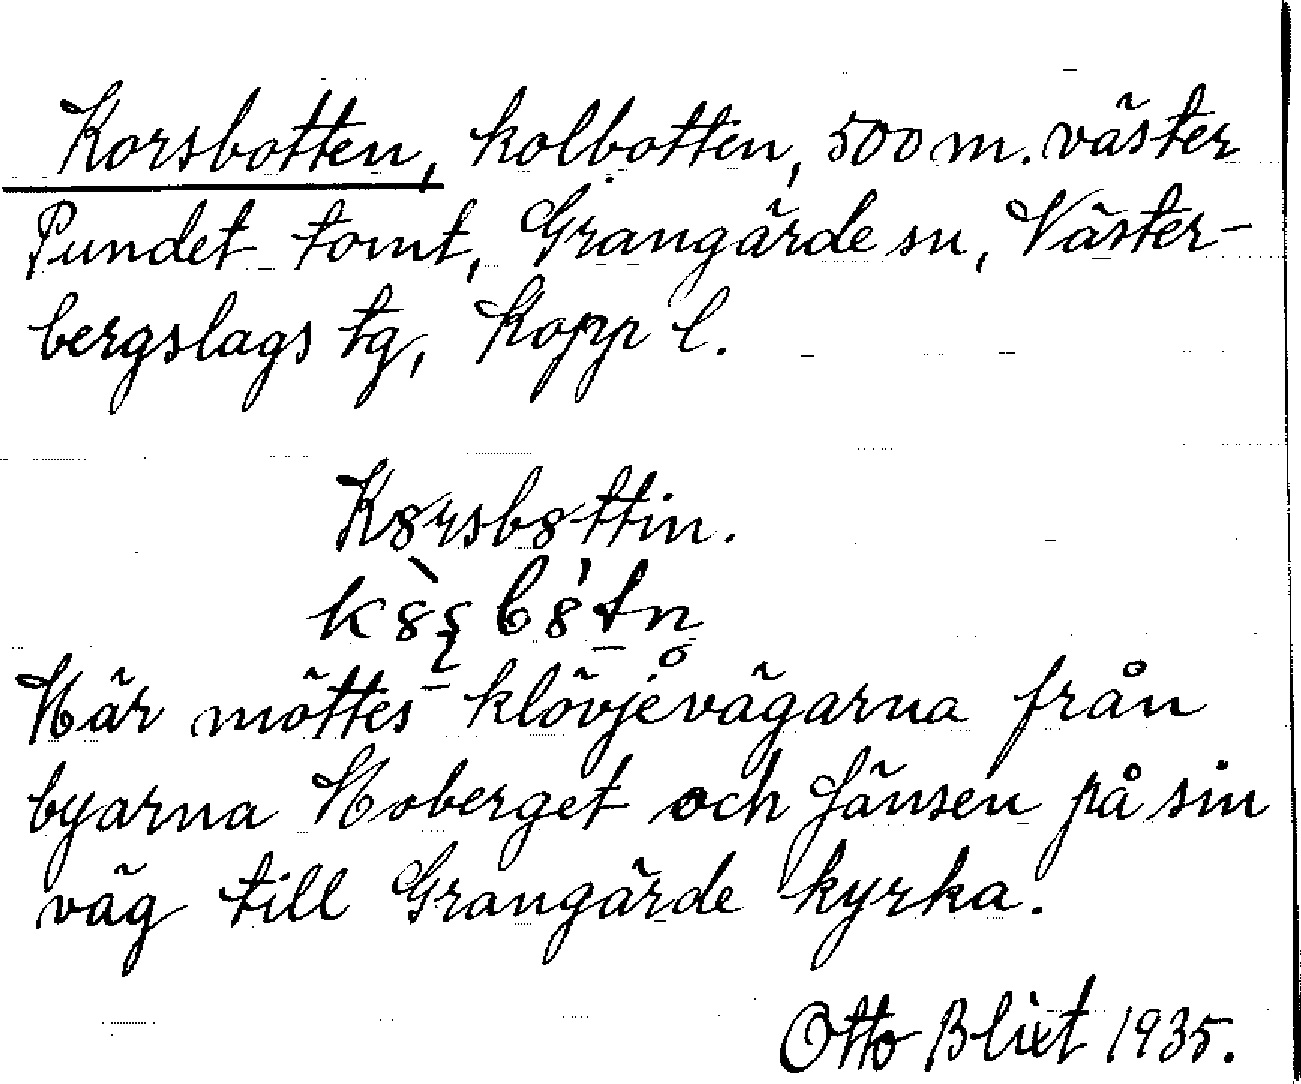 Korsbotten, kolbotten, 500 m. väster
Pundet tomt, Grangärde sn, Väster-
bergslags tg, Kopp l.
Kȣrsbȣttin.
kȣ̀ʂbȣ́tn̥
Här möttes klövjevägarna från
byarna Hoberget och Jänsen på sin
väg till Grangärde kyrka.
Otto Blixt 1935.